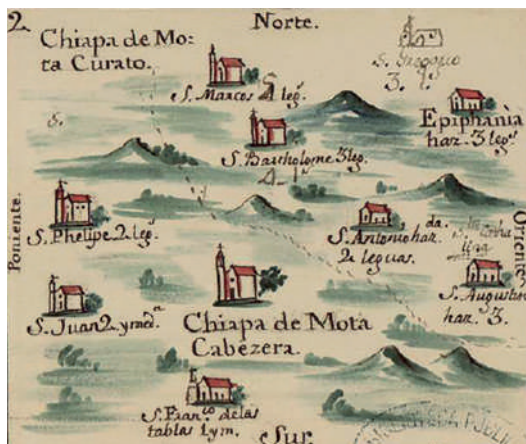 2
Norte.
Chiapa de Mo:
ta Curato.
S. Gregorio
3.
S. Marcos 4 leg.s
Epiphania
haz. 3 leg.s
S. Bartholome 3 leg.
Poniente.
S. Phelipe 2 leg.s
S. Antonio haz.da
2 leguas.
Oriente
S. Augustin
haz. 3.
S. Juan 2 y med.a
Chiapa de Mota
Cabezera.
S. Fran.co de las
tablas 1 y m.
Sur.